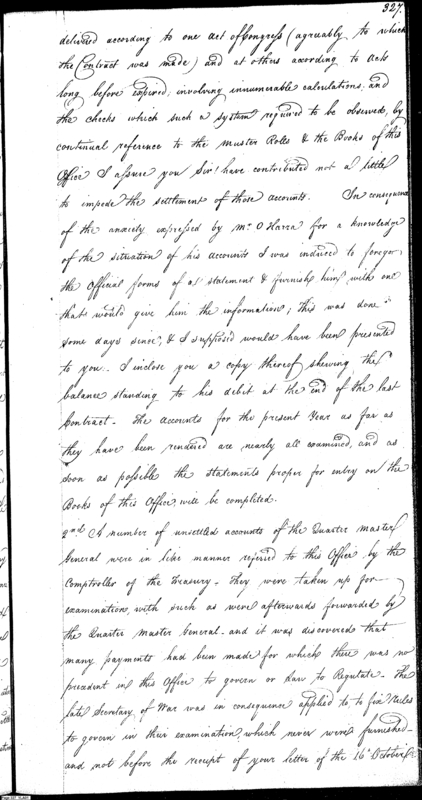 327.
delivered according to one Act of Congress (agreeably to which
the Contract was made) and at others according to Acts
long before expired, involving innumerable calculations, and
the checks which such a system required to be observed, by
continual reference to the Muster Rolls & the Books of this
Office I assure you Sir! have contributed not a little
to impede the settlement of those accounts. In consequence
of the anxiety expressed by Mr. O Harra for a knowledge
of the situation of his accounts I was induced to forego
the Official forms of a statement & furnish him with one
that would give him the information; this was done
some days sense, & I supposed would have been presented
to you. I inclose you a copy thereof shewing the
balance standing to his debit at the end of the last
Contract. The accounts for the present Year as far as
they have been rendered are nearly all examined, and as
soon as possible the statements proper for entry on the
Books of this Office, will be completed.
2nd A number of unsettled accounts of the Quarter Master
General were in like manner referred to this Office by the
Comptroller of the Treasury. They were taken up for
examination, with such as were afterwards forwarded by
the Quarter Master General and it was discovered that
many payments had been made for which there was no
precedent in this Office to govern or Law to Regulate. The
late Secretary of War was in consequence applied to to fix Rules
to govern in their examination, which never were furnished
and not before the receipt of your letter of the 16th October